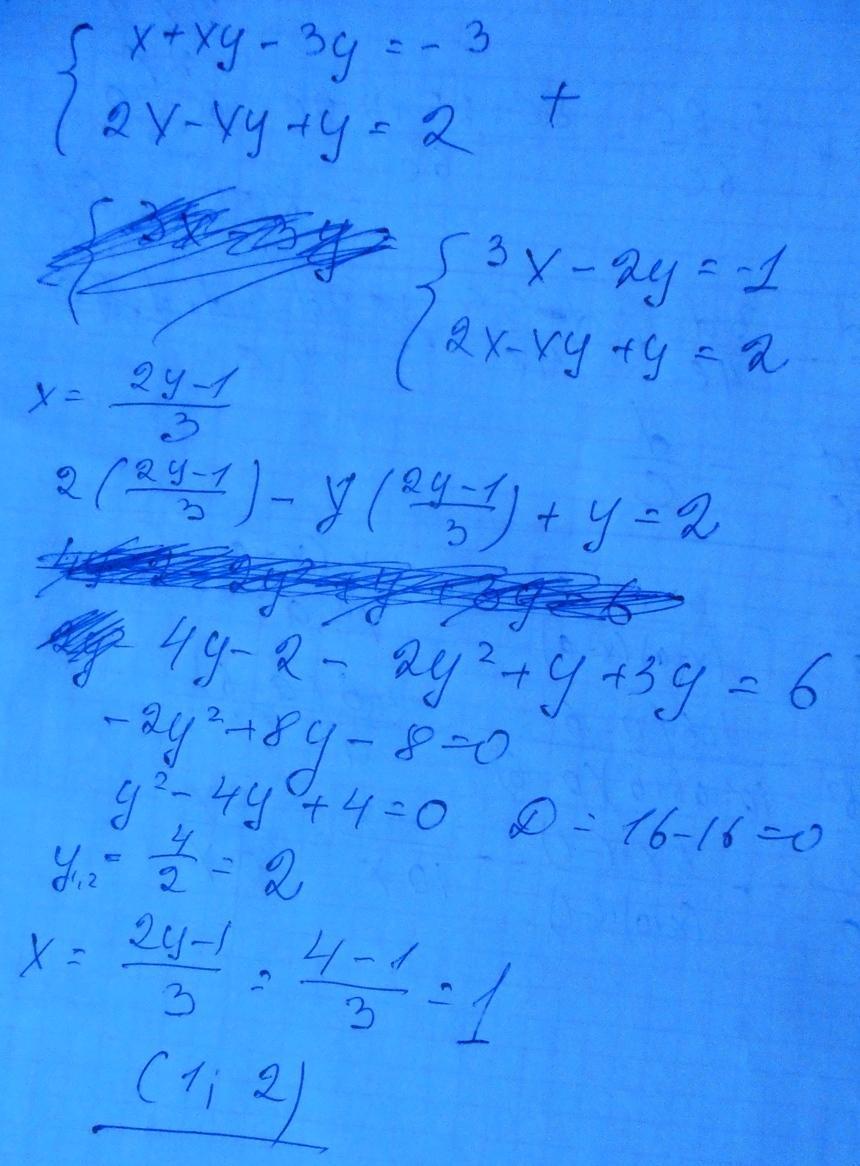 x+xy-3y=-3
2x-xy+y=2 +
3x-2y=-1
2x-xy+y=2
x= (2y-1)/3
2((2y-1)/3)-y((2y-1)/3)+y=2
4y-2-2y²+y+3y=6
-2y²+8y-8=0
y²-4y+4=0 D=16-16=0
y₁,₂= 4/2 =2
x= (2y-1)/3 = (4-1)/3 =1
(1; 2)